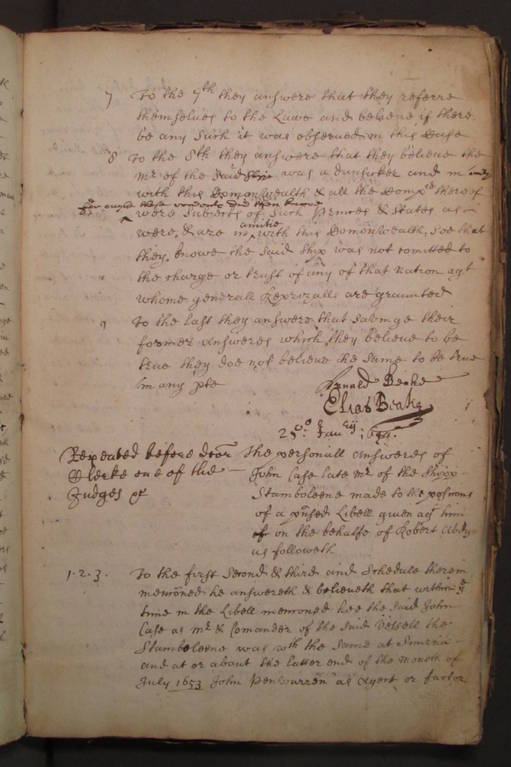 7 To the 7th they answere that they referre
themselues to the Lawe and beleiue if there
be any such it was obserued in this Case
8 To the 8th they answere that they beleiue the
mr of the said Ship was a Dunkirker and in
with this Comonwealth & all the thereof
for ought these rendents did then know
were Subiects of such Princes & States as
were, & are in amitie with this Comonwealth, Soe that
they knowe the said Ship was not comitted to
the charge or trust of any of that nation agt
whome generall Reprizalls are graunted
9 To the last they answere that saveinge their
former answeres which they beleiue to be
true they doe not beleiue the same to be true
in any pte
Arnald Beake
Elias Beake
25o Janry 1654.
Repeated before Dcor
Clerke one of the
Judges &c
The personall answeres of
John Case late mr of the Shipp
Stamboleene made to the positions
of a pnsed Libell giuen agt him
on the behalfe of Robert
as followeth
1. 2. 3. To the first second & third and Schedule therein
menconed he answereth & beleiueth that within the
time in the Libell menconed hee the said John
Case as mr & Comander of the said Vessell the
Stamboleene was wth the same at Smirna
and at or about the latter end of the moneth of
July 1653 John Penwarren as Agent or factor